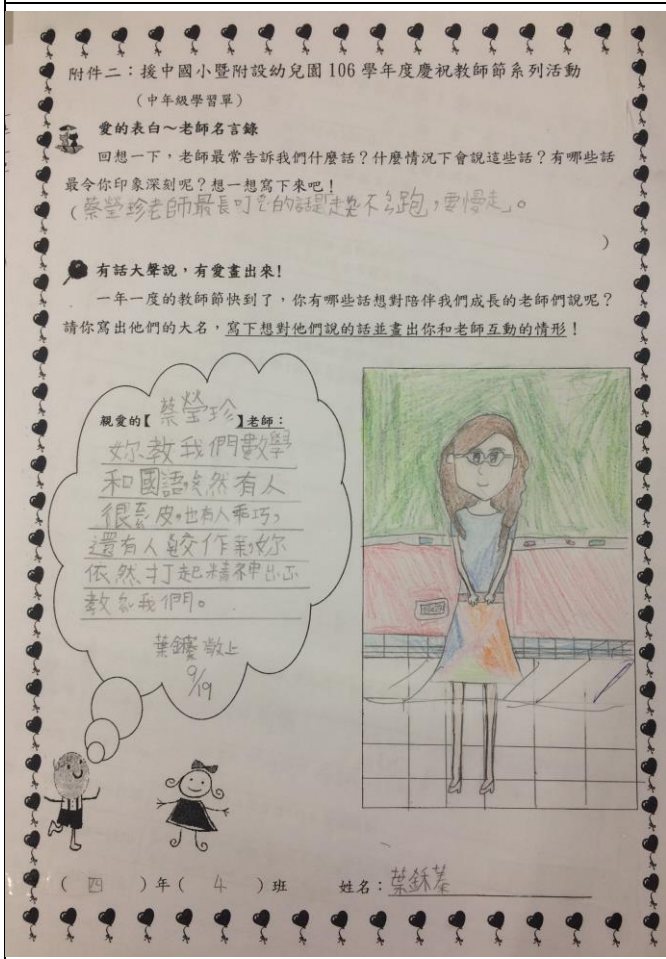 附件二：援中國小暨附設幼兒園 106 學年度慶祝教師節系列活動
（中年級學習單）
愛的表白～老師名言錄
回想一下，老師最常告訴我們什麼話？什麼情況下會說這些話？有哪些話
最令你印象深刻呢？想一想寫下來吧！
（蔡瑩珍老師最長叮的話是「走要不跑，要慢走」。
）
有話大聲說，有愛畫出來！
一年一度的教師節快到了，你有哪些話想對陪伴我們成長的老師們說呢？
請你寫出他們的大名，寫下想對他們說的話並畫出你和老師互動的情形！
親愛的【蔡瑩珍】老師：
妳教我們數學
和國語，然有人
很皮，也有人乖巧，
還有人交作業，妳
依然打起精神
教我們。
葉敬上
9/19
（四）年（4）班 姓名：葉